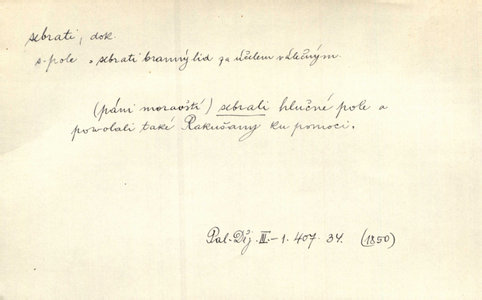 sebrati, dok.
s. pole, sebrati branný lid za účelem válečným.
(páni moravští) sebrali hlučné pole a
powolali také Rakušany ku pomoci.
Pal. Děj. III.-1. 407. 34. (1850)